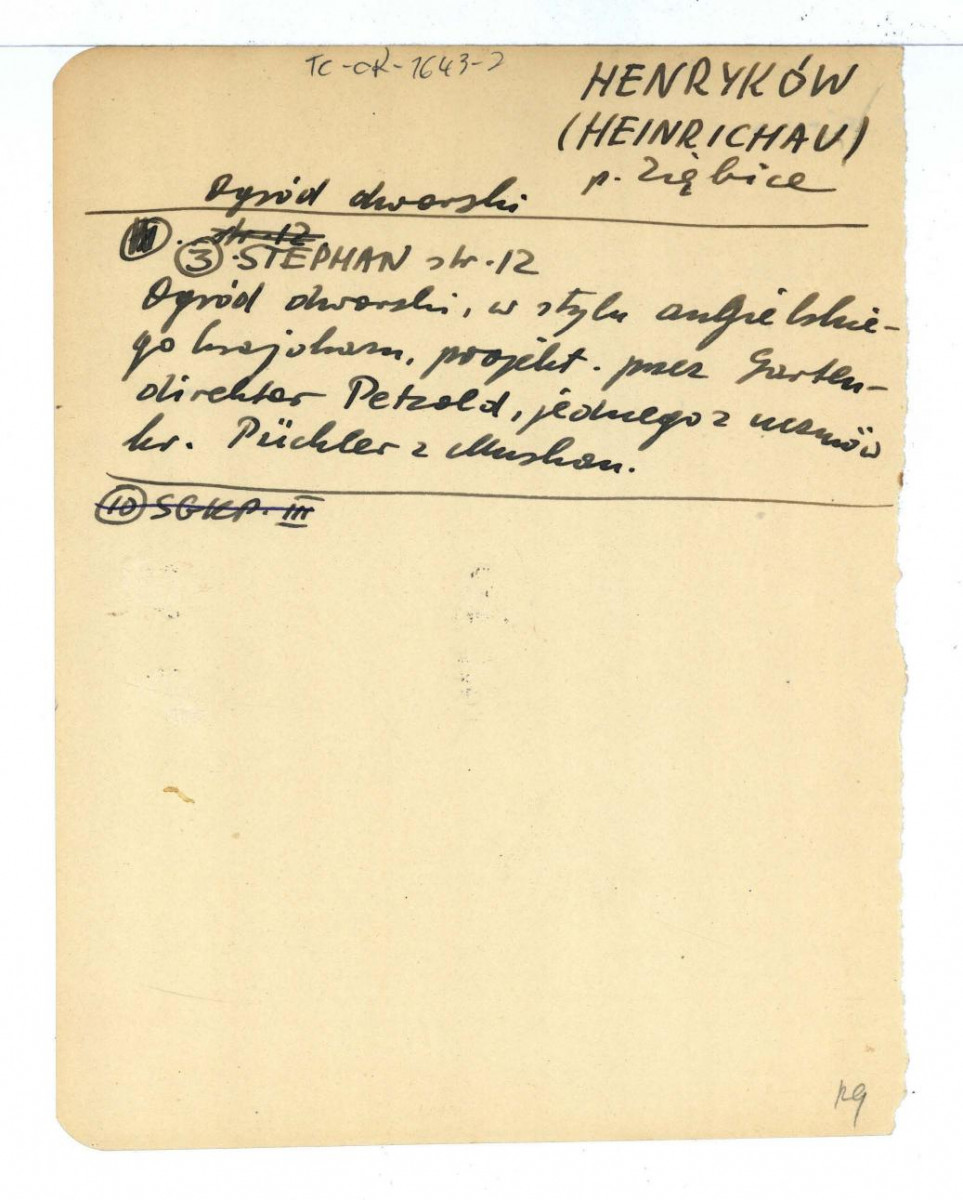 TC-OK-1643-2
HENRYKÓW
(HEINRICHAU)
p. Ziębice
Ogród dworski
III. str. 12
③ STEPHAN str. 12
Ogród dworski, w stylu angielskie-
go krajobazu, projekt. przez Garten-
direktor Petzold, jednego z uczniów
hr. Pückler z Muskau.
⑩ SGKP. III